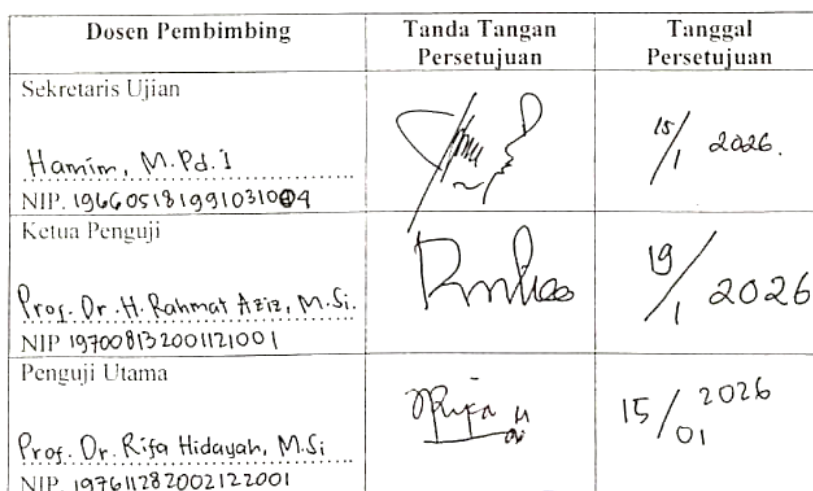 Dosen Pembimbing
Tanda Tangan
Persetujuan
Tanggal
Persetujuan
Sekretaris Ujian
Hamim, M.Pd.I
NIP. 196605181991031004
15/1 2026.
Ketua Penguji
Prof. Dr. H. Rahmat Aziz, M.Si.
NIP 197008132001121001
19/1 2026
Penguji Utama
Prof. Dr. Rifa Hidayah, M.Si
NIP. 197611282002122001
15/01 2026